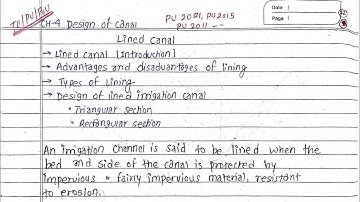 TU/PU/PoU
CH-4 Design of canal
PU 2021, PU 2015
PU 2011 --
Date
Page
Lined canal
→ Lined canal [Introduction]
→ Advantages and disadvantages of lining
→ Types of Lining
→ Design of lined irrigation canal
• Triangular section
• Rectangular section
An irrigation channel is said to be lined when the
bed and side of the canal is protected by
impervious or fairly impervious material, resistant
to erosion.